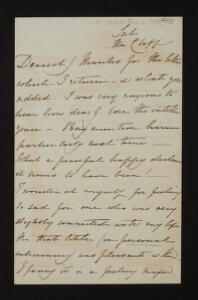 Sat
The Cliff
Dearest / Thanks for the letter
which I return - & what you
added. I was very anxious to
hear how dear G. bore the intelli
gence -
particularly next time -
What a peaceful happy
it seems to have been!
I wonder at myself for feeling
so sad for one who was very
slightly connected with my life
for personal
was pleasant &
I fancy it is a feeling